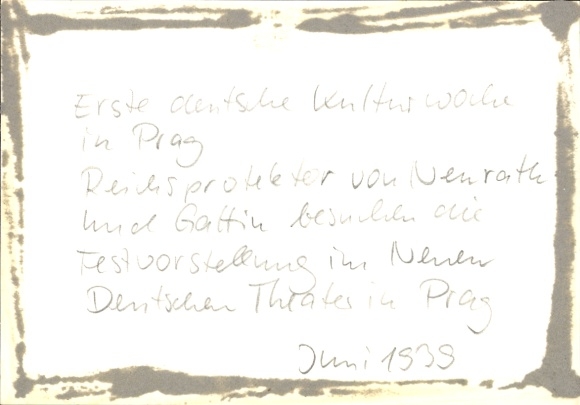 Erste deutsche Kulturwoche
in Prag
Reichsprotektor von Neurath
und Gattin besuchen die
Festvorstellung im Neuen
Deutschen Theater in Prag
Juni 1939